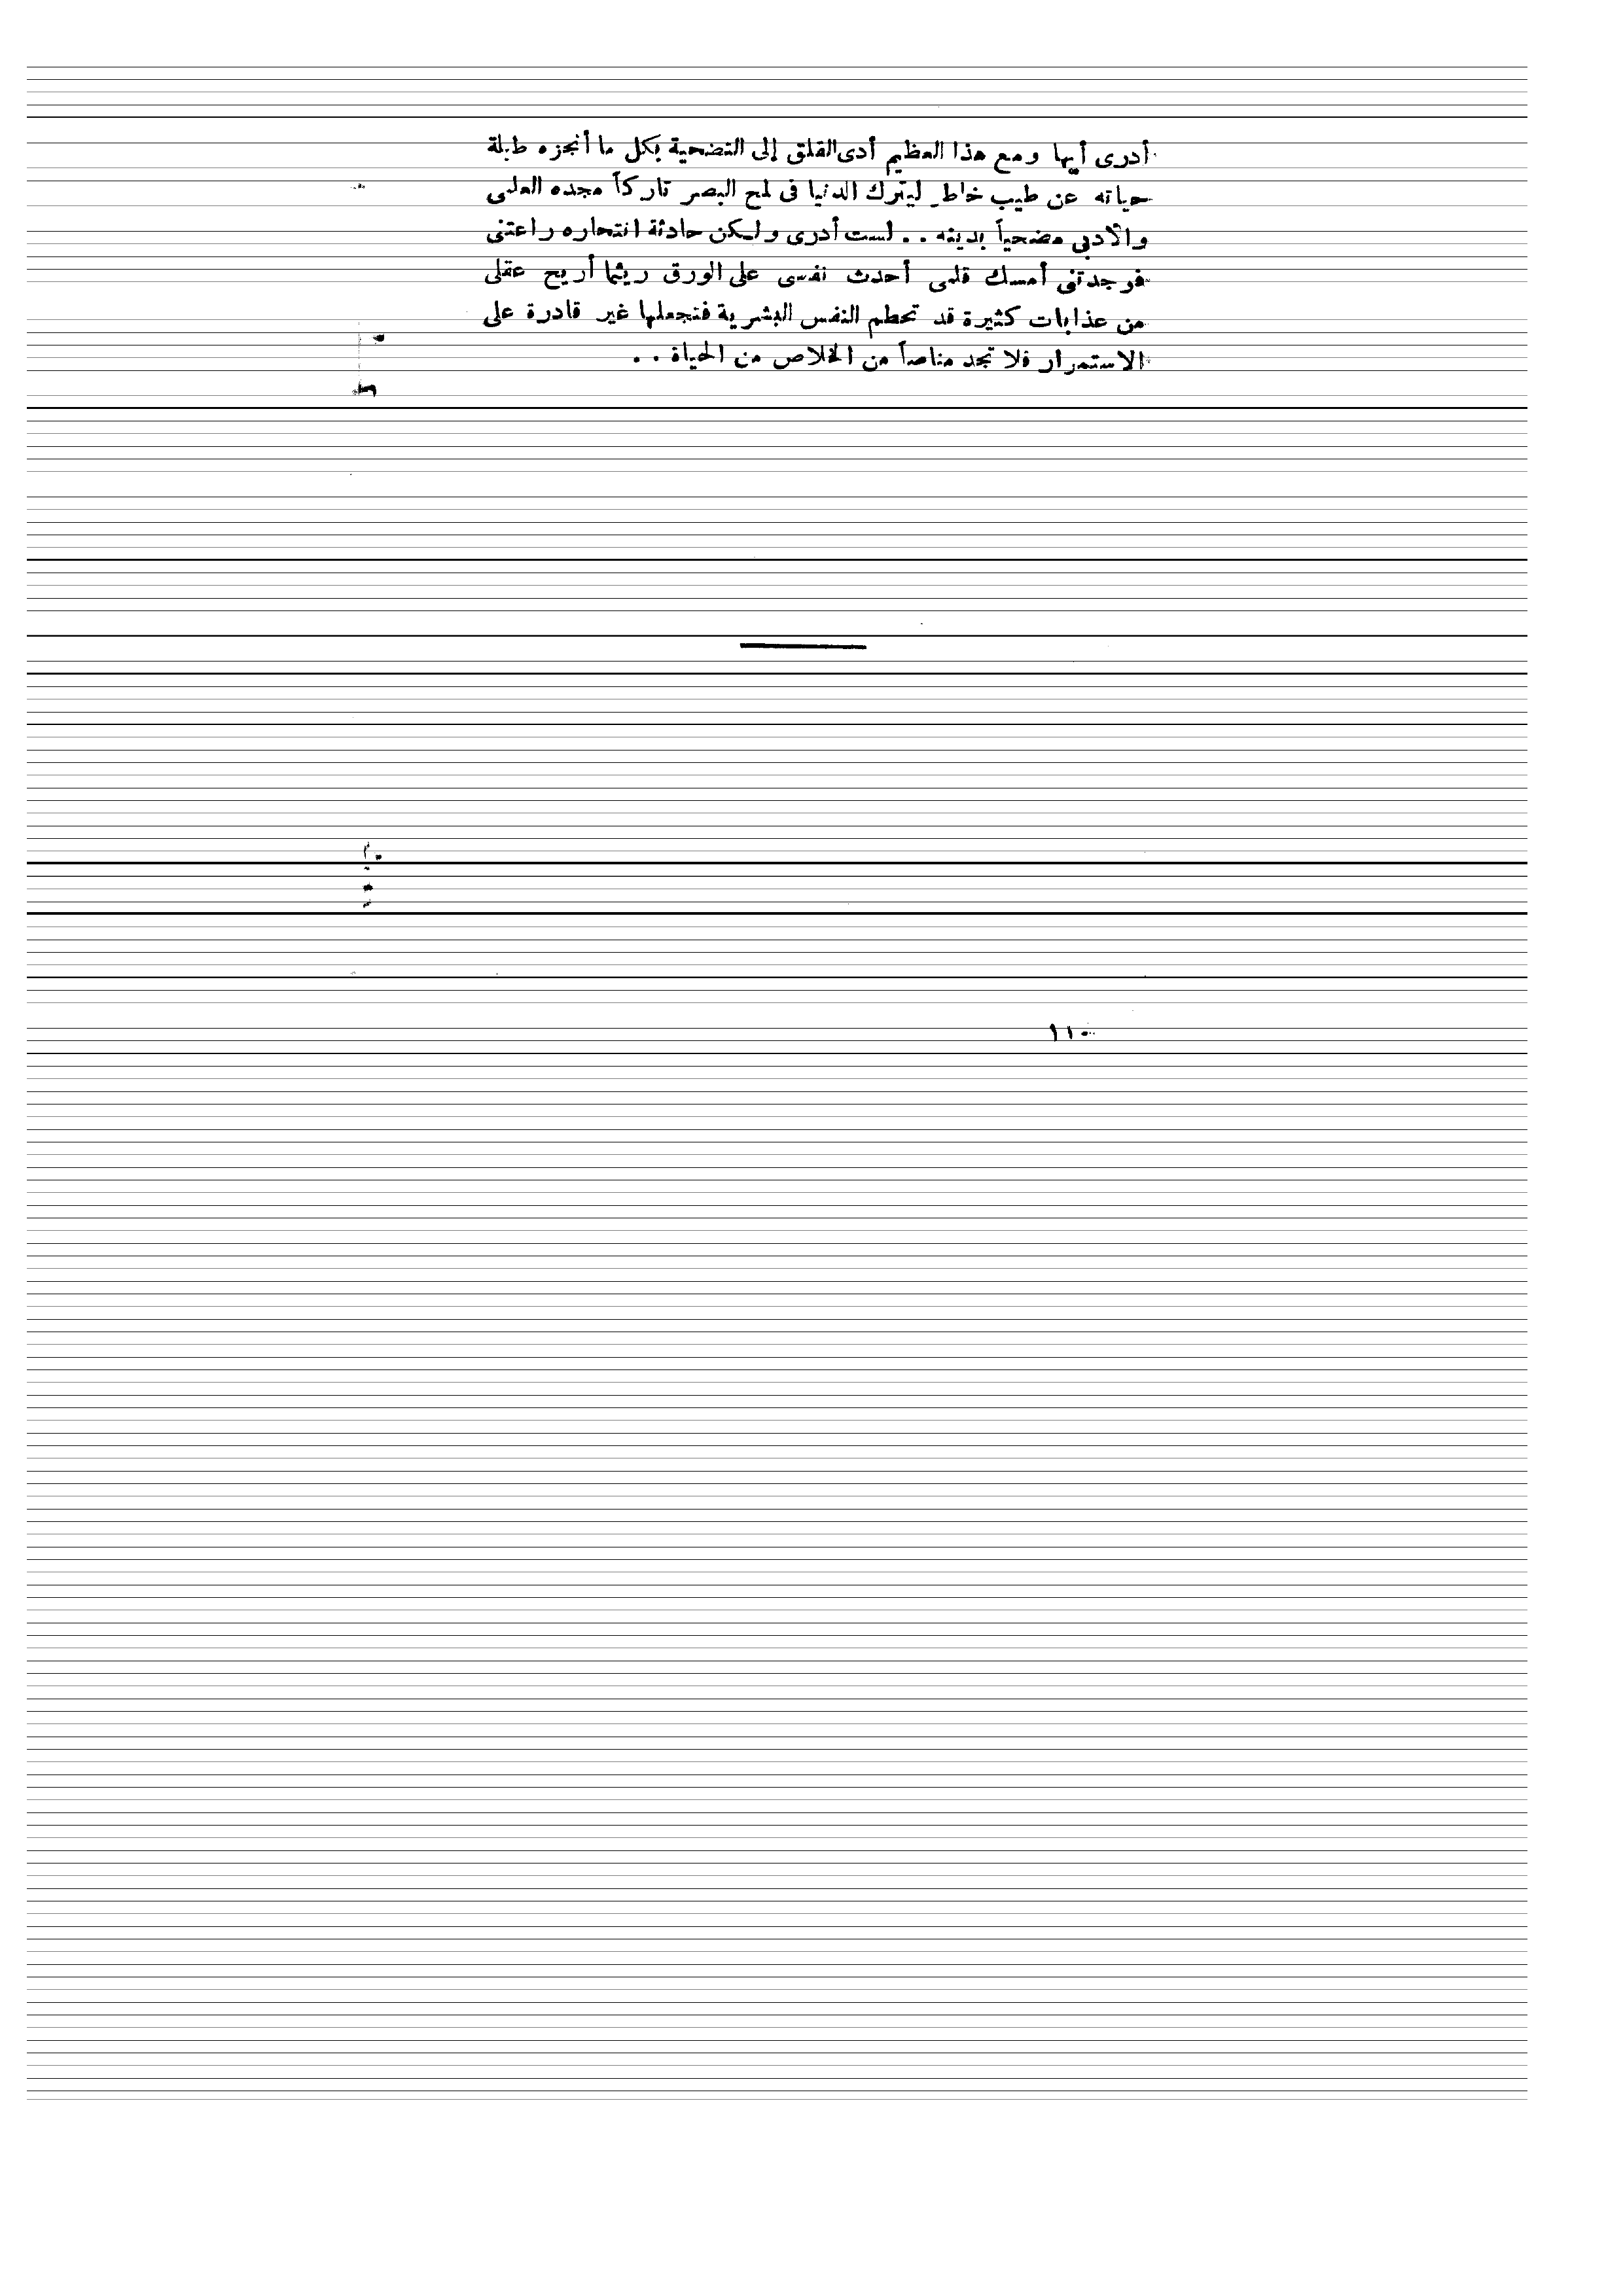 أدرى أيها ومع هذا العظيم أدى القلق إلى التضحية بكل ما أنجزه طيلة
حياته عن طيب خاطر ليترك الدنيا فى لمح البصر تاركاً مجده العلمى
والأدبى مضحياً بدينه . . لست أدرى ولكن حادثة انتحاره راعتنى
فوجدتنى أمسك قلمى أحدث نفسى على الورق ريثما أريح عقلى
من عذابات كثيرة قد تحطم النفس البشرية فتجعلها غير قادرة على
الاستمرار فلا تجد مناصاً من الخلاص من الحياة . .
١١٠